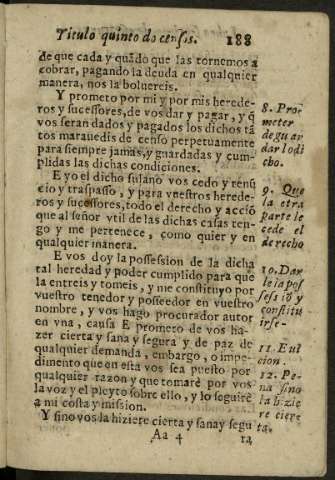 Titulo quinto de censos. 188
de que cada y quãdo que las tornemos a
cobrar, pagando la deuda en qualquier
manera, nos la bolvereis.
Y prometo por mi y por mis herede-
ros y sucessores, de vos dar y pagar, y q̃
vos seran dados y pagados los dichos tã
tos maravedis de censo perpetuamente
para siempre jamas, y guardadas y cum-
plidas las dichas condiciones.
E yo el dicho fulano vos cedo y renũ
cio y traspasso, y para vuestros herede-
ros y sucessores, todo el derecho y acciõ
que al señor vtil de las dichas casas ten-
go y me pertenece, como quier y en
qualquier manera.
E vos doy la possession de la dicha
tal heredad y poder cumplido para que
la entreis y tomeis, y me constituyo por
vuestro tenedor y posseedor en vuestro
nombre, y vos hago procurador autor
en vna, causa E prometo de vos ha-
zer cierta y sana y segura y de paz de
qualquier demanda, embargo, o impe-
dimento que en esta vos sea puesto por
qualquier razon y que tomarè por vos
la voz y el pleyto sobre ello, y lo seguirè
a mi costa y mission.
Y si no vos la hiziere cierta y sana y segu
Aa 4 ra
8. Pro
meter
de guar
dar lo di
cho.
9. Que
la otra
parte le
cede el
derecho
10. Dar
le la pos
sesiõ y
constitu
irse-
11. Evi
cion
12. Pe-
na si no
la hizie
re cierta